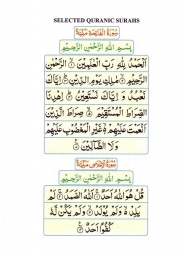 SELECTED QURANIC SURAHS
سُورَةُ الْفَاتِحَةِ مَكِّيَّة
بِسْمِ اللَّهِ الرَّحْمَٰنِ الرَّحِيمِ
الْحَمْدُ لِلَّهِ رَبِّ الْعَالَمِينَ ۝ الرَّحْمَٰنِ
الرَّحِيمِ ۝ مَالِكِ يَوْمِ الدِّينِ ۝ إِيَّاكَ
نَعْبُدُ وَ إِيَّاكَ نَسْتَعِينُ ۝ اِهْدِنَا
الصِّرَاطَ الْمُسْتَقِيمَ ۝ صِرَاطَ الَّذِينَ
أَنْعَمْتَ عَلَيْهِمْ ۝ غَيْرِ الْمَغْضُوبِ عَلَيْهِمْ
وَلَا الضَّالِّينَ ۝
سُورَةُ الْإِخْلَاصِ مَكِّيَّة
بِسْمِ اللَّهِ الرَّحْمَٰنِ الرَّحِيمِ
قُلْ هُوَ اللَّهُ أَحَدٌ ۝ اللَّهُ الصَّمَدُ ۝ لَمْ
يَلِدْ ۝ وَلَمْ يُولَدْ ۝ وَلَمْ يَكُنْ لَهُ
كُفُوًا أَحَدٌ ۝